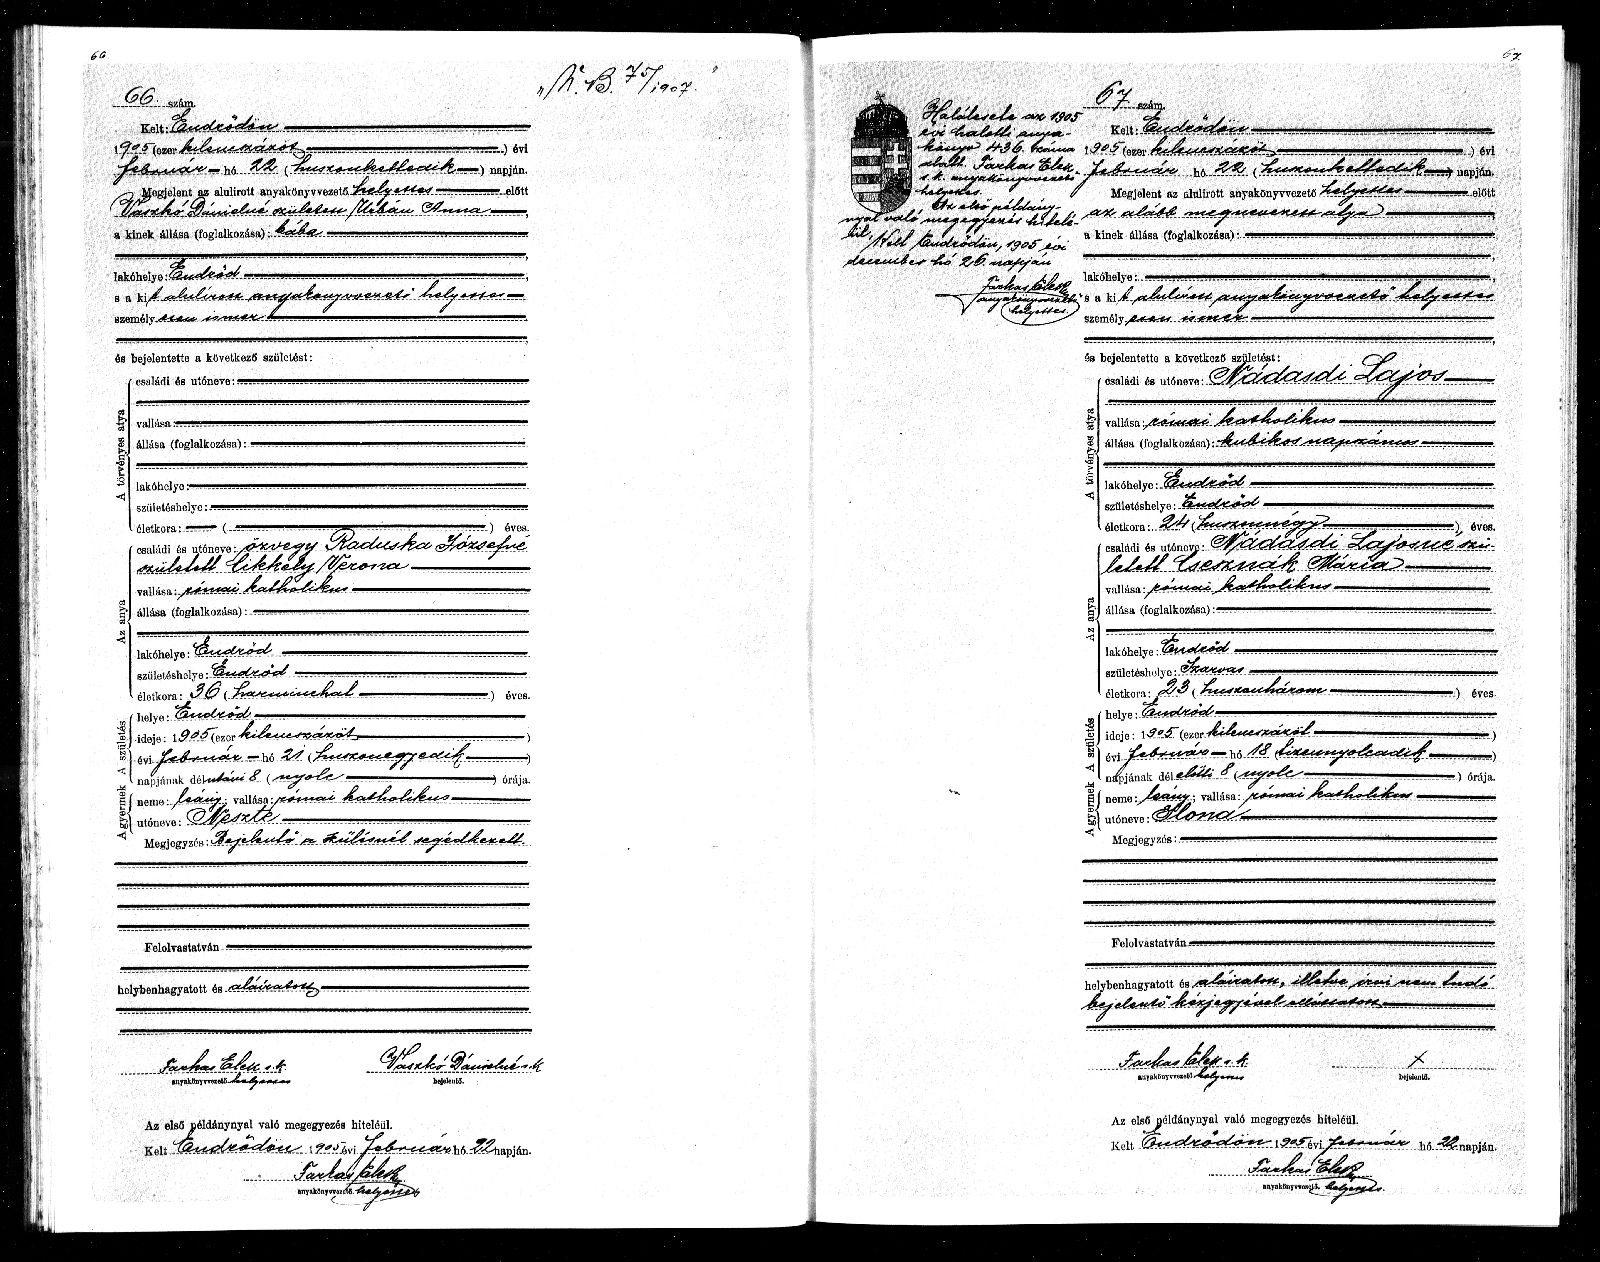 66
"N.B. 75/1907."
66 szám.
Kelt: Endrődön
1905 (ezer kilenczázöt) évi
február hó 22 (huszonkettedik) napján.
Megjelent az alulirott anyakönyvvezető helyettes előtt
Vaszkó Dánielné született Urbán Anna,
a kinek állása (foglalkozása): bába
lakóhelye: Endrőd,
s a kit alulirott anyakönyvvezető helyettes
személyesen ismer,
és bejelentette a következő születést:
A törvényes atya
családi és utóneve:
vallása:
állása (foglalkozása):
lakóhelye:
születéshelye:
életkora: ( ) éves.
Az anya
családi és utóneve: özvegy Raduska Józsefné
született Cikkely Verona
vallása: római katholikus
állása (foglalkozása):
lakóhelye: Endrőd
születéshelye: Endrőd
életkora: 36 (harminchat) éves.
A születés
helye: Endrőd
ideje: 1905 (ezer kilenczázöt)
évi február hó 21 (huszonegyedik)
napjának délutáni 8 (nyolc) órája.
A gyermek
neme: leány; vallása: római katholikus
utóneve:
Megjegyzés: Bejelentő a szülésnél segédkezett.
Felolvastatván
helybenhagyatott és aláiratott
Farkas Elek s.k. Vaszkó Dánielné s.k.
anyakönyvvezető helyettes bejelentő.
Az első példánynyal való megegyezés hiteléül.
Kelt Endrődön 1905 évi február hó 22 napján.
Farkas Elek
anyakönyvvezető helyettes
67
Halálesete az 1905
évi halotti anya-
könyv 436 száma
alatt. Farkas Elek
s.k. anyakönyvvezető
helyettes.
Az első példány-
nyal való megegyezés hitelé-
ül.
Kelt Endrődön, 1905 évi
december hó 26 napján
Farkas Elek
anyakönyvvezető
helyettes
67 szám.
Kelt: Endrődön
1905 (ezer kilenczázöt) évi
február hó 22 (huszonkettedik) napján.
Megjelent az alulirott anyakönyvvezető helyettes előtt
az alább megnevezett atya
a kinek állása (foglalkozása):
lakóhelye:
s a kit alulirott anyakönyvvezető helyettes
személyesen ismer
és bejelentette a következő születést:
A törvényes atya
családi és utóneve: Nádasdi Lajos
vallása: római katholikus
állása (foglalkozása): kubikos napszámos
lakóhelye: Endrőd
születéshelye: Endrőd
életkora: 24 (huszonnégy) éves.
Az anya
családi és utóneve: Nádasdi Lajosné szü-
letett Csesznák Mária
vallása: római katholikus
állása (foglalkozása):
lakóhelye: Endrőd
születéshelye: Szarvas
életkora: 23 (huszonhárom) éves.
A születés
helye: Endrőd
ideje: 1905 (ezer kilenczázöt)
évi február hó 18 (tizennyolcadik)
napjának délelőtti 8 (nyolc) órája.
A gyermek
neme: leány; vallása: római katholikus
utóneve: Ilona
Megjegyzés:
Felolvastatván
helybenhagyatott és aláiratott, illetve irni nem tudó
bejelentő kézjegyével elláttatott
Farkas Elek s.k. x
anyakönyvvezető helyettes bejelentő.
Az első példánynyal való megegyezés hiteléül.
Kelt Endrődön 1905 évi február hó 22 napján.
Farkas Elek
anyakönyvvezető helyettes.